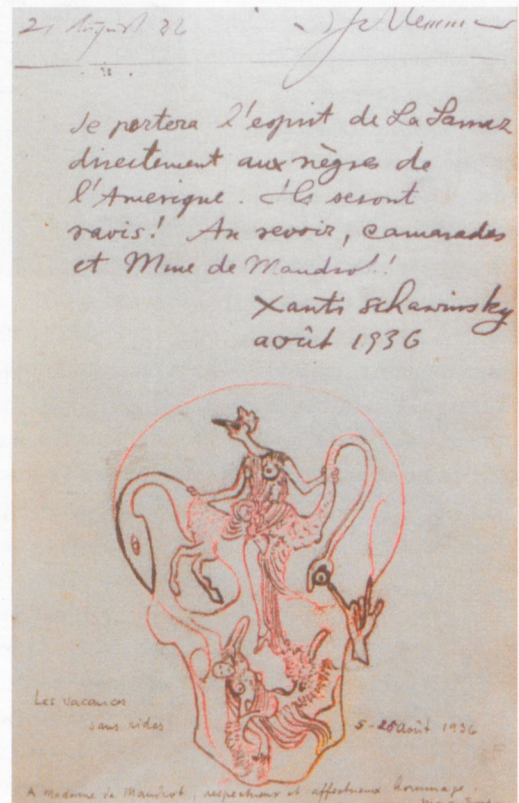 Je portera l'esprit de La Sarraz
directement aux nègres de
l'Amerique. Ils seront
ravis! Au revoir, camarades
et Mme de Mandrot!
Xanti Schawinsky
août 1936
Les vacances
sans rides
5-25 août 1936
A Madame de Mandrot, respectueux et affectueux hommage.